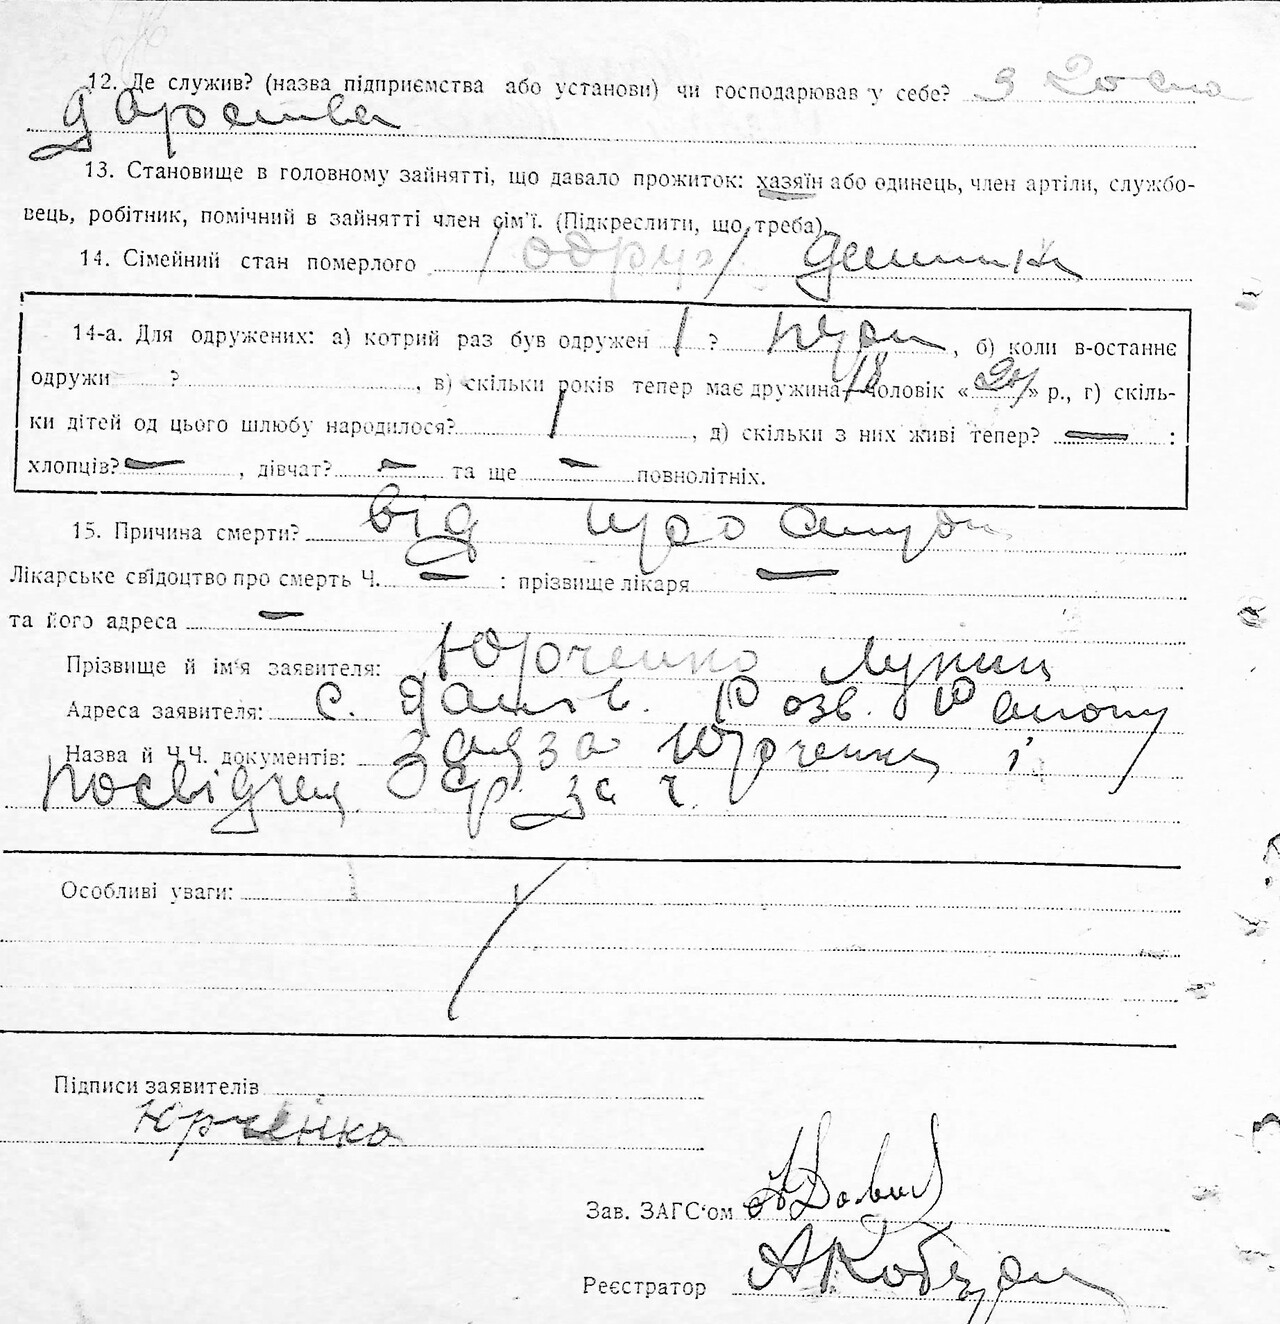 12. Де служив? (назва підприємства або установи) чи господарював у себе? З госпо
дарства
13. Становище в головному зайнятті, що давало прожиток: хазяїн або одинець, член артіли, службо-
вець, робітник, помічний в зайнятті член сім'ї. (Підкреслити, що треба).
14. Сімейний стан померлого /одруж/
14-а. Для одружених: а) котрий раз був одружен 1 ? , б) коли в-останнє
одружи ? , в) скільки років тепер має дружина 18 чоловік « » р., г) скіль-
ки дітей од цього шлюбу народилося? 1 , д) скільки з них живі тепер? — :
хлопців? — , дівчат? — та ще — повнолітніх.
15. Причина смерти? від простуди
Лікарське свідоцтво про смерть Ч. — : прізвище лікаря —
та його адреса —
Прізвище й ім'я заявителя: Юрченко
Адреса заявителя: с. Розв. Району
Назва й Ч.Ч. документів: заява Юрченка і
посвідчен с/р за ч.
Особливі уваги:
Підписи заявителів
Юрченко
Зав. ЗАГС'ом
Реєстратор